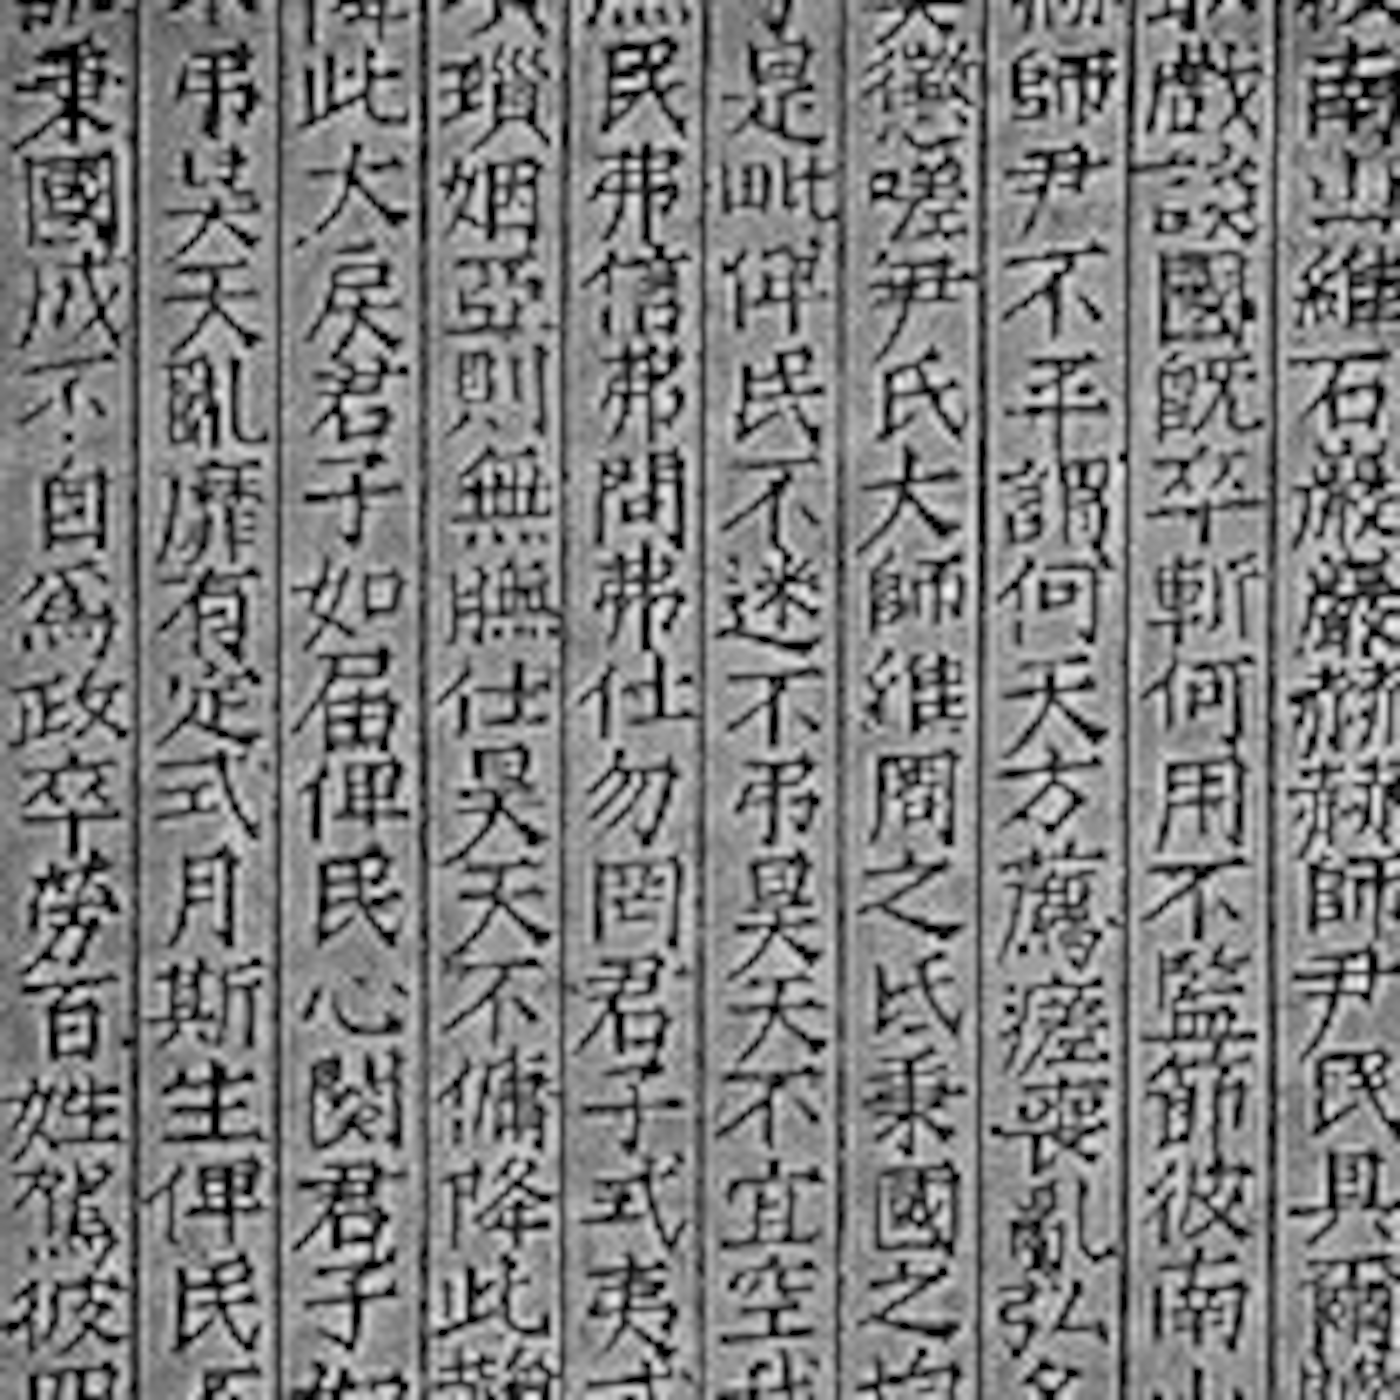 南山維石巖巖赫赫師尹民具爾
戲談國既卒斬何用不監節彼南
師尹不平謂何天方薦瘥喪亂弘
懲嗟尹氏大師維周之氐秉國之均
是毗俾民不迷不弔昊天不宜空我
民弗信弗問弗仕勿罔君子式夷
瑣姻亞則無膴仕昊天不傭降此鞫
降此大戾君子如届俾民心闋君子如
弔昊天亂靡有定式月斯生俾民
秉國成不自爲政卒勞百姓駕彼四